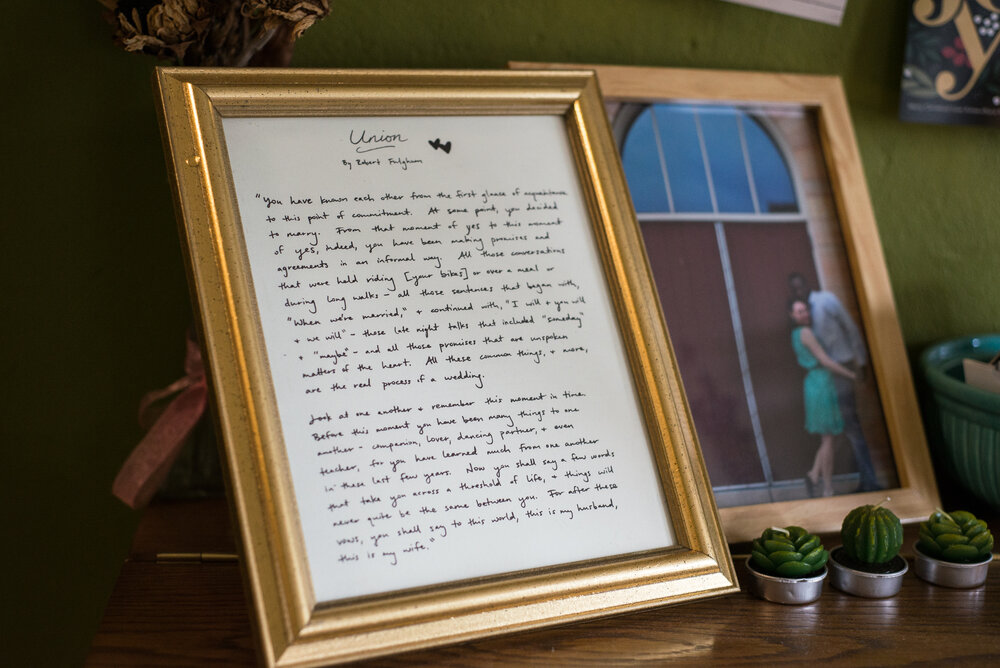 Union
By Robert Fulghum
"You have known each other from the first glance of acquaintance
to this point of commitment. At some point, you decided
to marry. From that moment of yes to this moment
of yes, indeed, you have been making promises and
agreements in an informal way. All those conversations
that were held riding [your bikes] or over a meal or
during long walks - all those sentences that began with,
"When we're married," + continued with, "I will + you will
+ we will" - those late night talks that included "someday"
+ "maybe" - and all those promises that are unspoken
matters of the heart. All these common things, + more,
are the real process if a wedding.
Look at one another + remember this moment in time.
Before this moment you have been many things to one
another - companion, lover, dancing partner, + even
teacher, for you have learned much from one another
in these last few years. Now you shall say a few words
that take you across a threshold of life, + things will
never quite be the same between you. For after these
vows, you shall say to this world, this is my husband,
this is my wife."
y